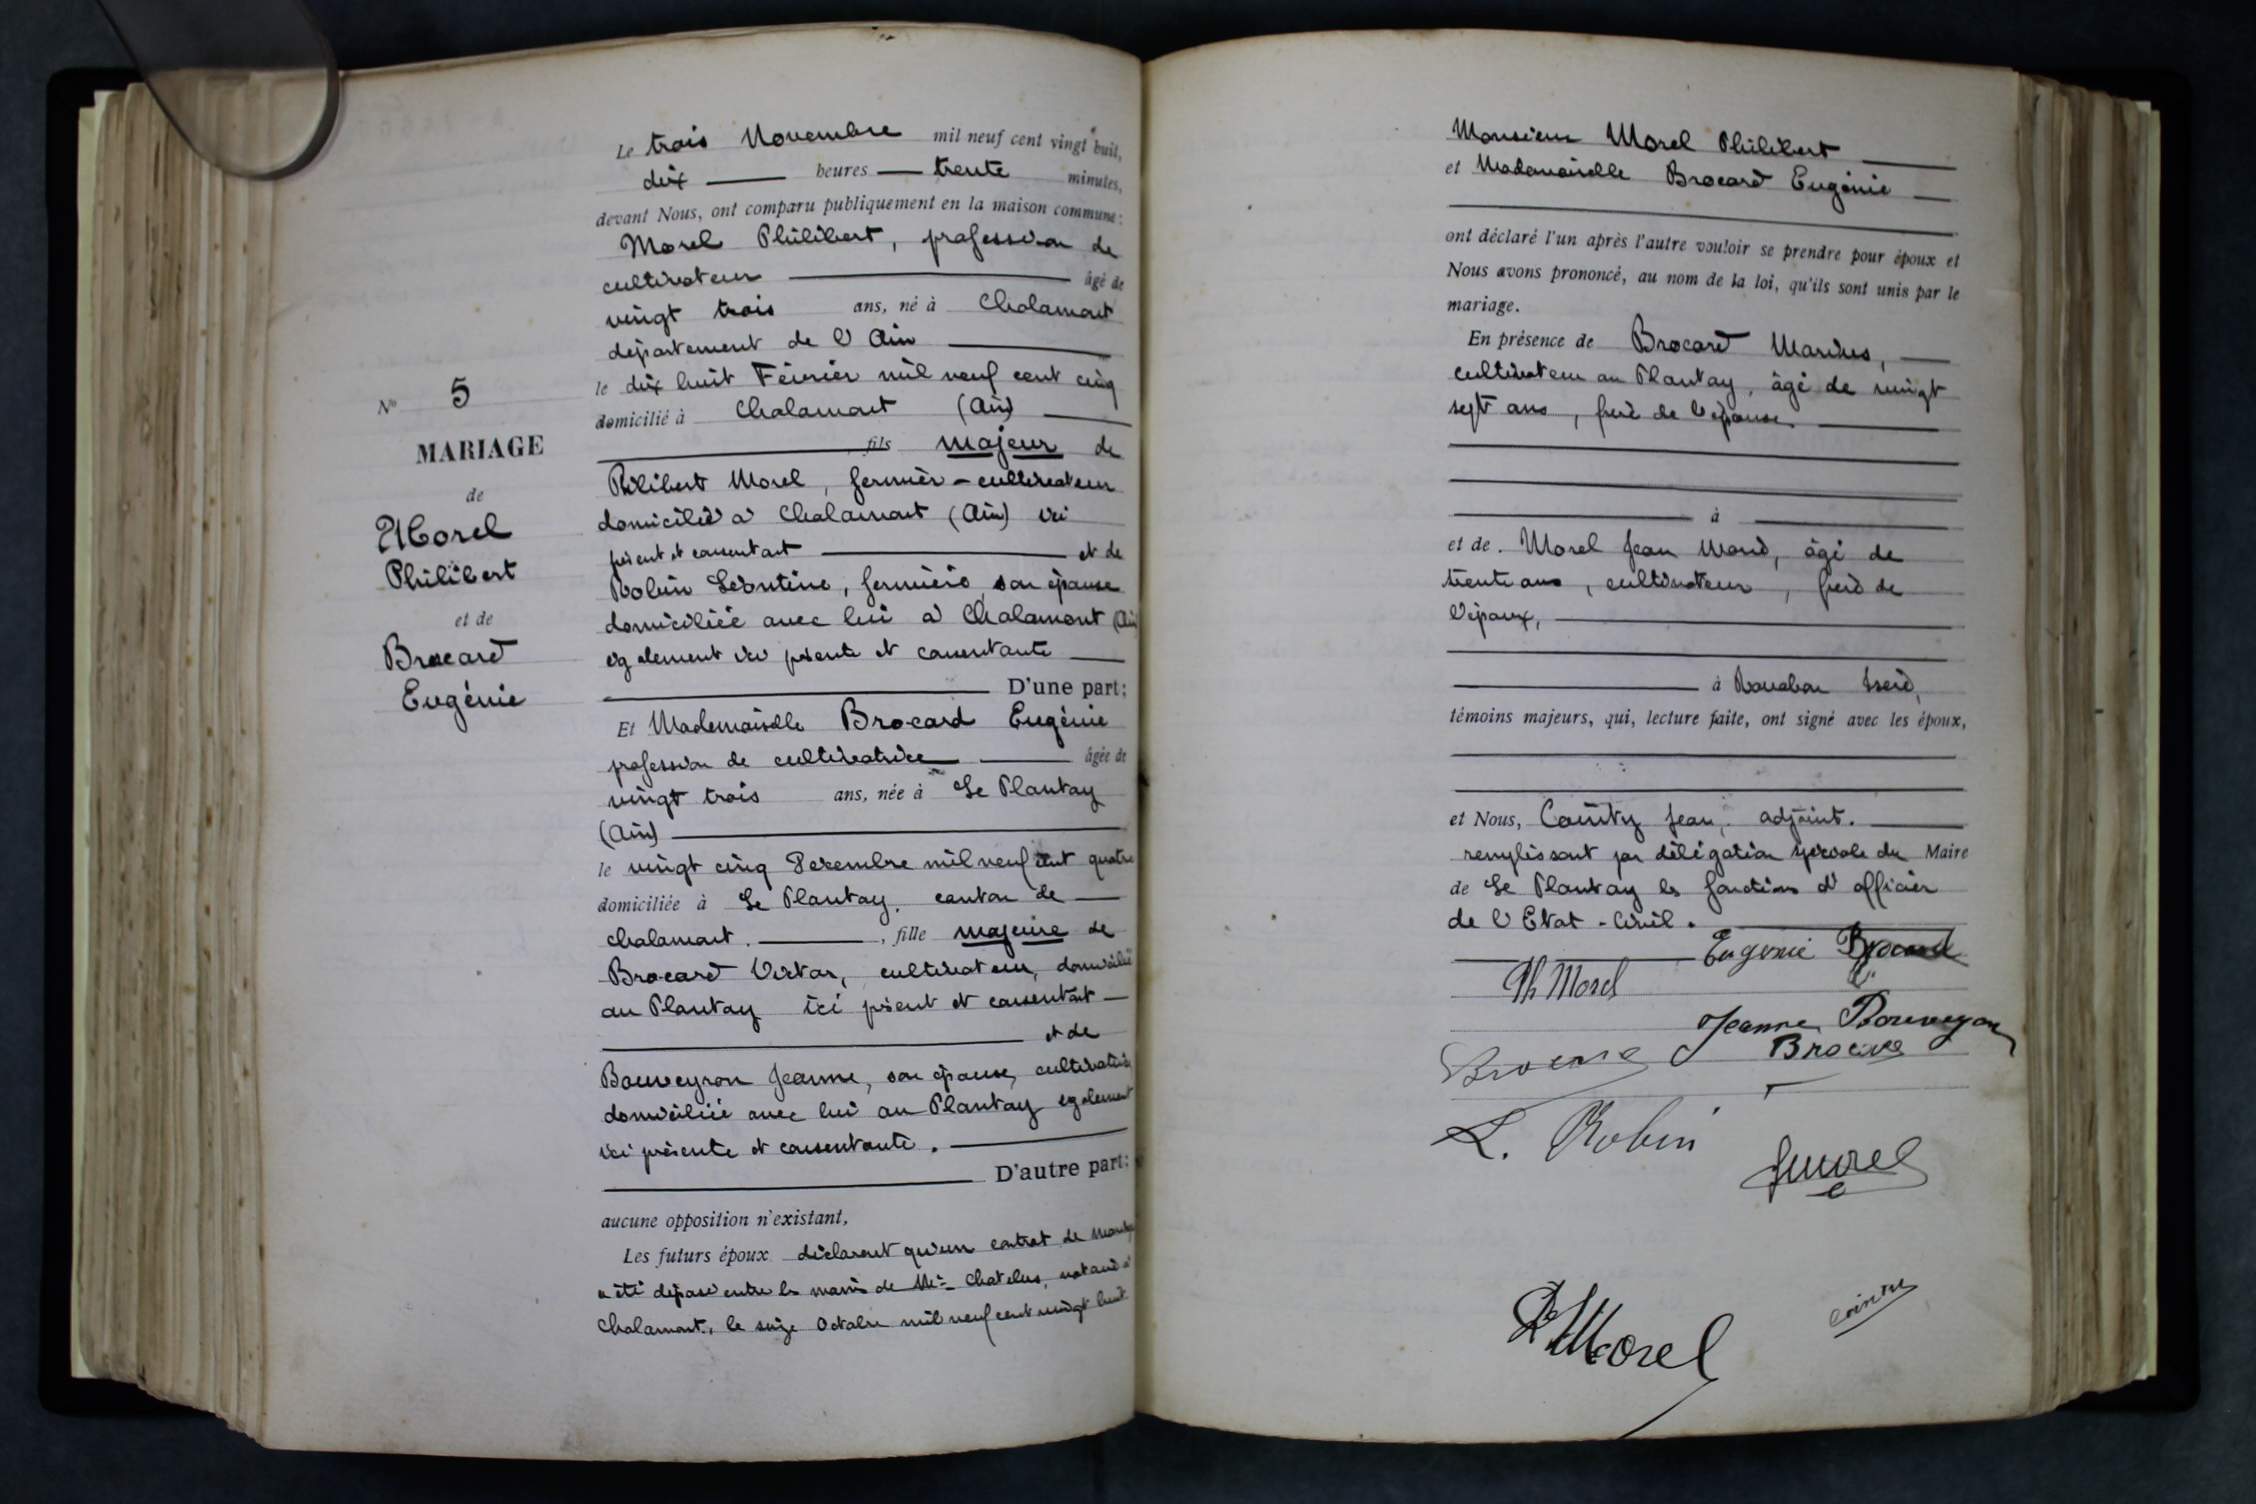 N° 5
MARIAGE
de
Morel
Philibert
et de
Brocard
Eugénie
Le trois Novembre mil neuf cent vingt huit,
dix heures trente minutes,
devant Nous, ont comparu publiquement en la maison commune:
Morel Philibert, profession de
cultivateur âgé de
vingt trois ans, né à Chalamont
département de l'Ain
le dix huit Février mil neuf cent cinq
domicilié à Chalamont (Ain)
fils majeur de
Philibert Morel, fermier-cultivateur
domicilié à Chalamont (Ain) ici
présent et consentant et de
Robin Léontine, fermière, son épouse
domiciliée avec lui à Chalamont (Ain)
également ici présente et consentante
D'une part;
Et Mademoiselle Brocard Eugénie
profession de cultivatrice âgée de
vingt trois ans, née à Le Plantay
(Ain)
le vingt cinq Décembre mil neuf cent quatre
domiciliée à Le Plantay, canton de
Chalamont. , fille majeure de
Brocard Victor, cultivateur, domicilié
au Plantay ici présent et consentant
et de
Bouveyron Jeanne, son épouse, cultivatrice
domiciliée avec lui au Plantay également
ici présente et consentante.
D'autre part:
aucune opposition n'existant,
Les futurs époux déclarent qu'un contrat de mariage
a été déposé entre les mains de Me Chatelus, notaire à
Chalamont, le seize Octobre mil neuf cent vingt huit
Monsieur Morel Philibert
et Mademoiselle Brocard Eugénie
ont déclaré l'un après l'autre vouloir se prendre pour époux et
Nous avons prononcé, au nom de la loi, qu'ils sont unis par le
mariage.
En présence de Brocard Marius,
cultivateur au Plantay, âgé de vingt
sept ans, frère de l'épouse.
à
et de Morel Jean Marie, âgé de
trente ans, cultivateur, frère de
l'époux,
à Isère,
témoins majeurs, qui, lecture faite, ont signé avec les époux,
et Nous, Cointy Jean, adjoint.
remplissant par délégation spéciale du Maire
de Le Plantay les fonctions d'officier
de l'Etat-Civil.
Eugénie Brocard
Ph Morel
Jeanne Bouveyron
Brocard Brocard
L. Robin
JMorel
Ph Morel